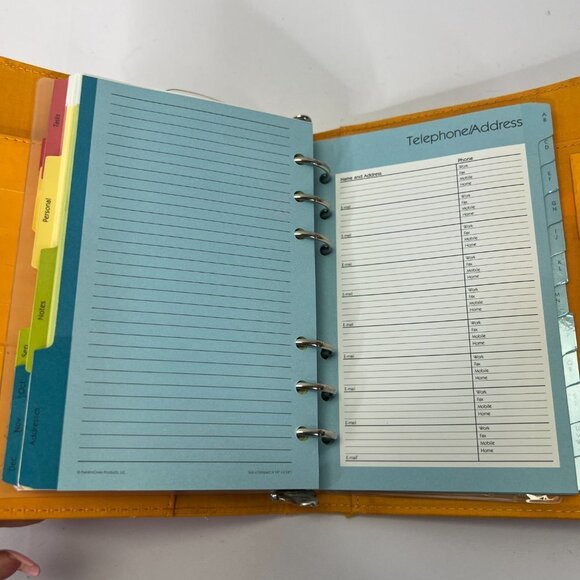 Tasks
Personal
Notes
Sep
Oct
Nov
Dec
Addresses
Telephone/Address
Name and Address
Phone
Work
Fax
Mobile
Home
E-mail
Work
Fax
Mobile
Home
E-mail
Work
Fax
Mobile
Home
E-mail
Work
Fax
Mobile
Home
E-mail
Work
Fax
Mobile
Home
E-mail
Work
Fax
Mobile
Home
E-mail
Work
Fax
Mobile
Home
E-mail
Work
Fax
Mobile
Home
E-mail
A
B
I
J
K
L
M
N